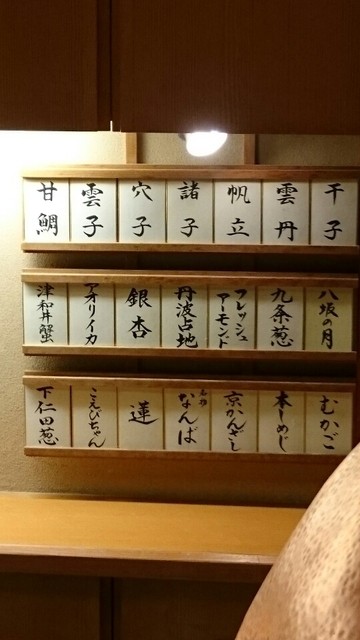 干子
雲丹
帆立
諸子
穴子
雲子
甘鯛
八坂の月
九条葱
フレッシュアーモンド
丹波占地
銀杏
アオリイカ
津和井蟹
むかご
本しめじ
京かんざし
名物なんば
蓮
こえびちゃん
下仁田葱